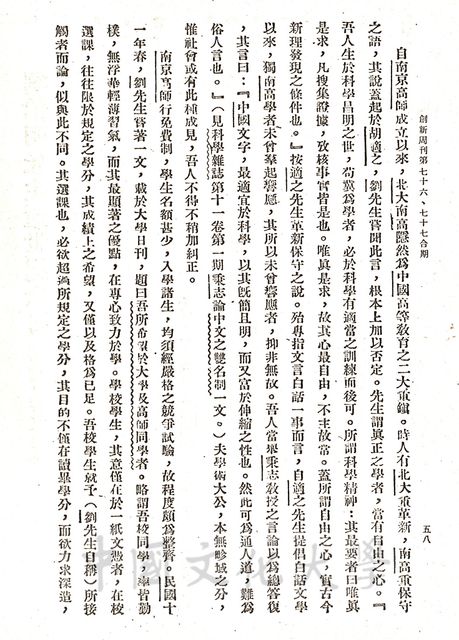 創新周刊第七十六、七十七合期
五八
自南京高師成立以來，北大南高隱然爲中國高等敎育之二大重鎮。時人有北大重革新，南高重保守
之語，其說蓋起於胡適之，劉先生嘗聞此言，根本上加以否定。先生謂眞正之學者，當有自由之心。『
吾人生於科學昌明之世，苟冀爲學者，必於科學有適當之訓練而後可。所謂科學精神：其最要者曰唯眞
是求，凡搜集證據，攷核事實皆是也。唯眞是求，故其心最自由，不主故常。蓋所謂自由之心，實古今
新理發現之條件也。』按適之先生革新保守之說。殆專指文言白話一事而言，自適之先生提倡白話文學
以來，獨南高學者未曾羣起響應，其所以未曾響應者，抑非無故。吾人當舉秉志敎授之言論以爲總答復
，其言曰：『中國文字，最適宜於科學，以其旣簡且明，而又富於伸縮之性也。然此可爲通人道，難爲
俗人言也。』（見科學雜誌第十一卷第一期秉志論中文之雙名制一文。）夫學術大公，本無畛域之分，
惟社會或有此種成見，吾人不得不稍加糾正。
南京高師行免費制，學生名額甚少，入學諸生，均須經嚴格之競爭試驗，故程度頗爲整齊。民國十
一年春，劉先生嘗著一文，載於大學日刊，題曰吾所希望於大學及高師同學者。略謂吾校同學，率皆勤
樸，無浮華輕薄習氣，而其最顯著之優點，在專心致力於學。學校學生，其意僅在於一紙文憑者，在校
選課，往往限於規定之學分，其成績上之希望，又僅以及格爲已足。吾校學生就予（劉先生自稱）所接
觸者而論，似與此不同。其選課也，必欲超過所規定之學分，其目的不僅在讀畢學分，而欲力求深造，
中國文化大學